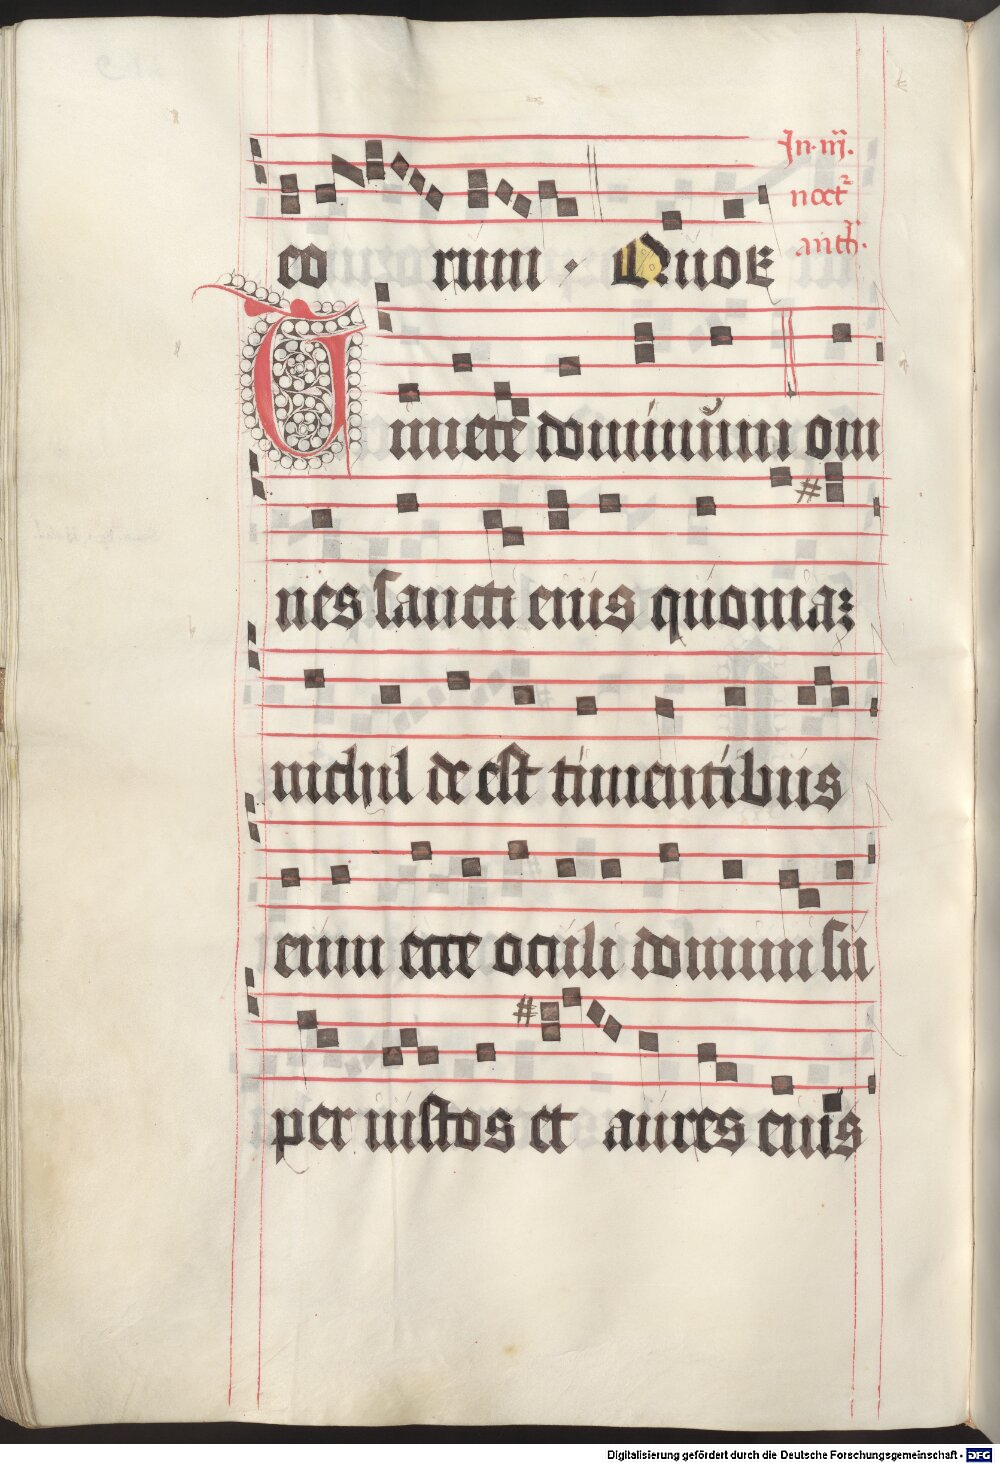 In·iij.
noct᷑
anth̄.
eo rum · Quor
Timete dominum om
nes sancti eius quoniaꝫ
nichil de est timentibus
eum ecce oculi domini su
per iustos et aures eius
Digitalisierung gefördert durch die Deutsche Forschungsgemeinschaft - DFG